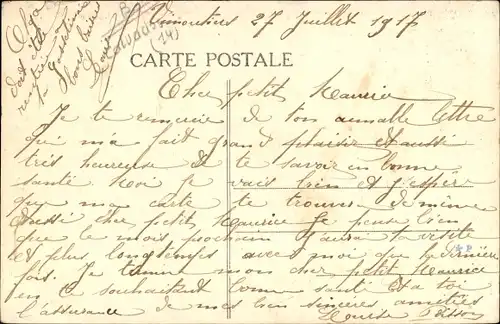 27 Juillet 1917
CARTE POSTALE
Cher petit Maurice
Je te remercie de ton aimable lettre
qui m'a fait grand plaisir et aussi
très heureuse de te savoir en bonne
santé Moi je vais bien et j'espère
que ma carte te trouvera de même
aussi cher petit Maurice Je pense bien
que le mois prochain j'aurai ta visite
et plus longtemps avec moi que la dernière
fois. Je termine mon cher petit Maurice
en te souhaitant bonne santé Et a toi
l'assurance de mes bien sincères amitiés
Olga
doit être
rentrée
tous baisers
Calvados
(14)